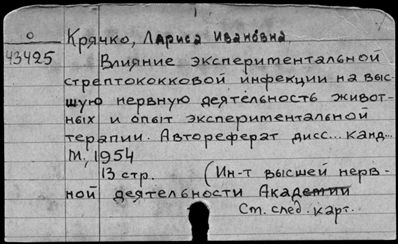 О
43425
Крячко, Лариса Ивановна.
Влияние экспериментальной
стрептококковой инфекции на выс-
шую нервную деятельность живот-
ных и опыт экспериментальной
терапии. Автореферат дисс... канд...
М., 1954
13 стр. (Ин-т высшей нерв-
ной деятельности Академии
См. след. карт.